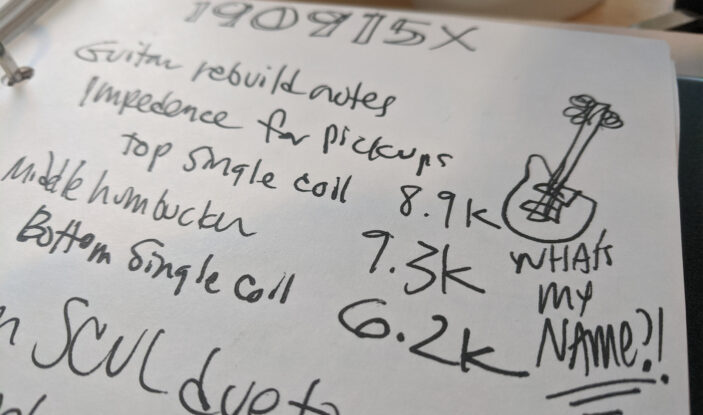 190915X
Guitar rebuild notes
Impedence for pickups
Top single coil 8.9K
Middle humbucker 9.3K
Bottom Single Coil 6.2K
WHAts
MY
NAMe?!
SCUL due to